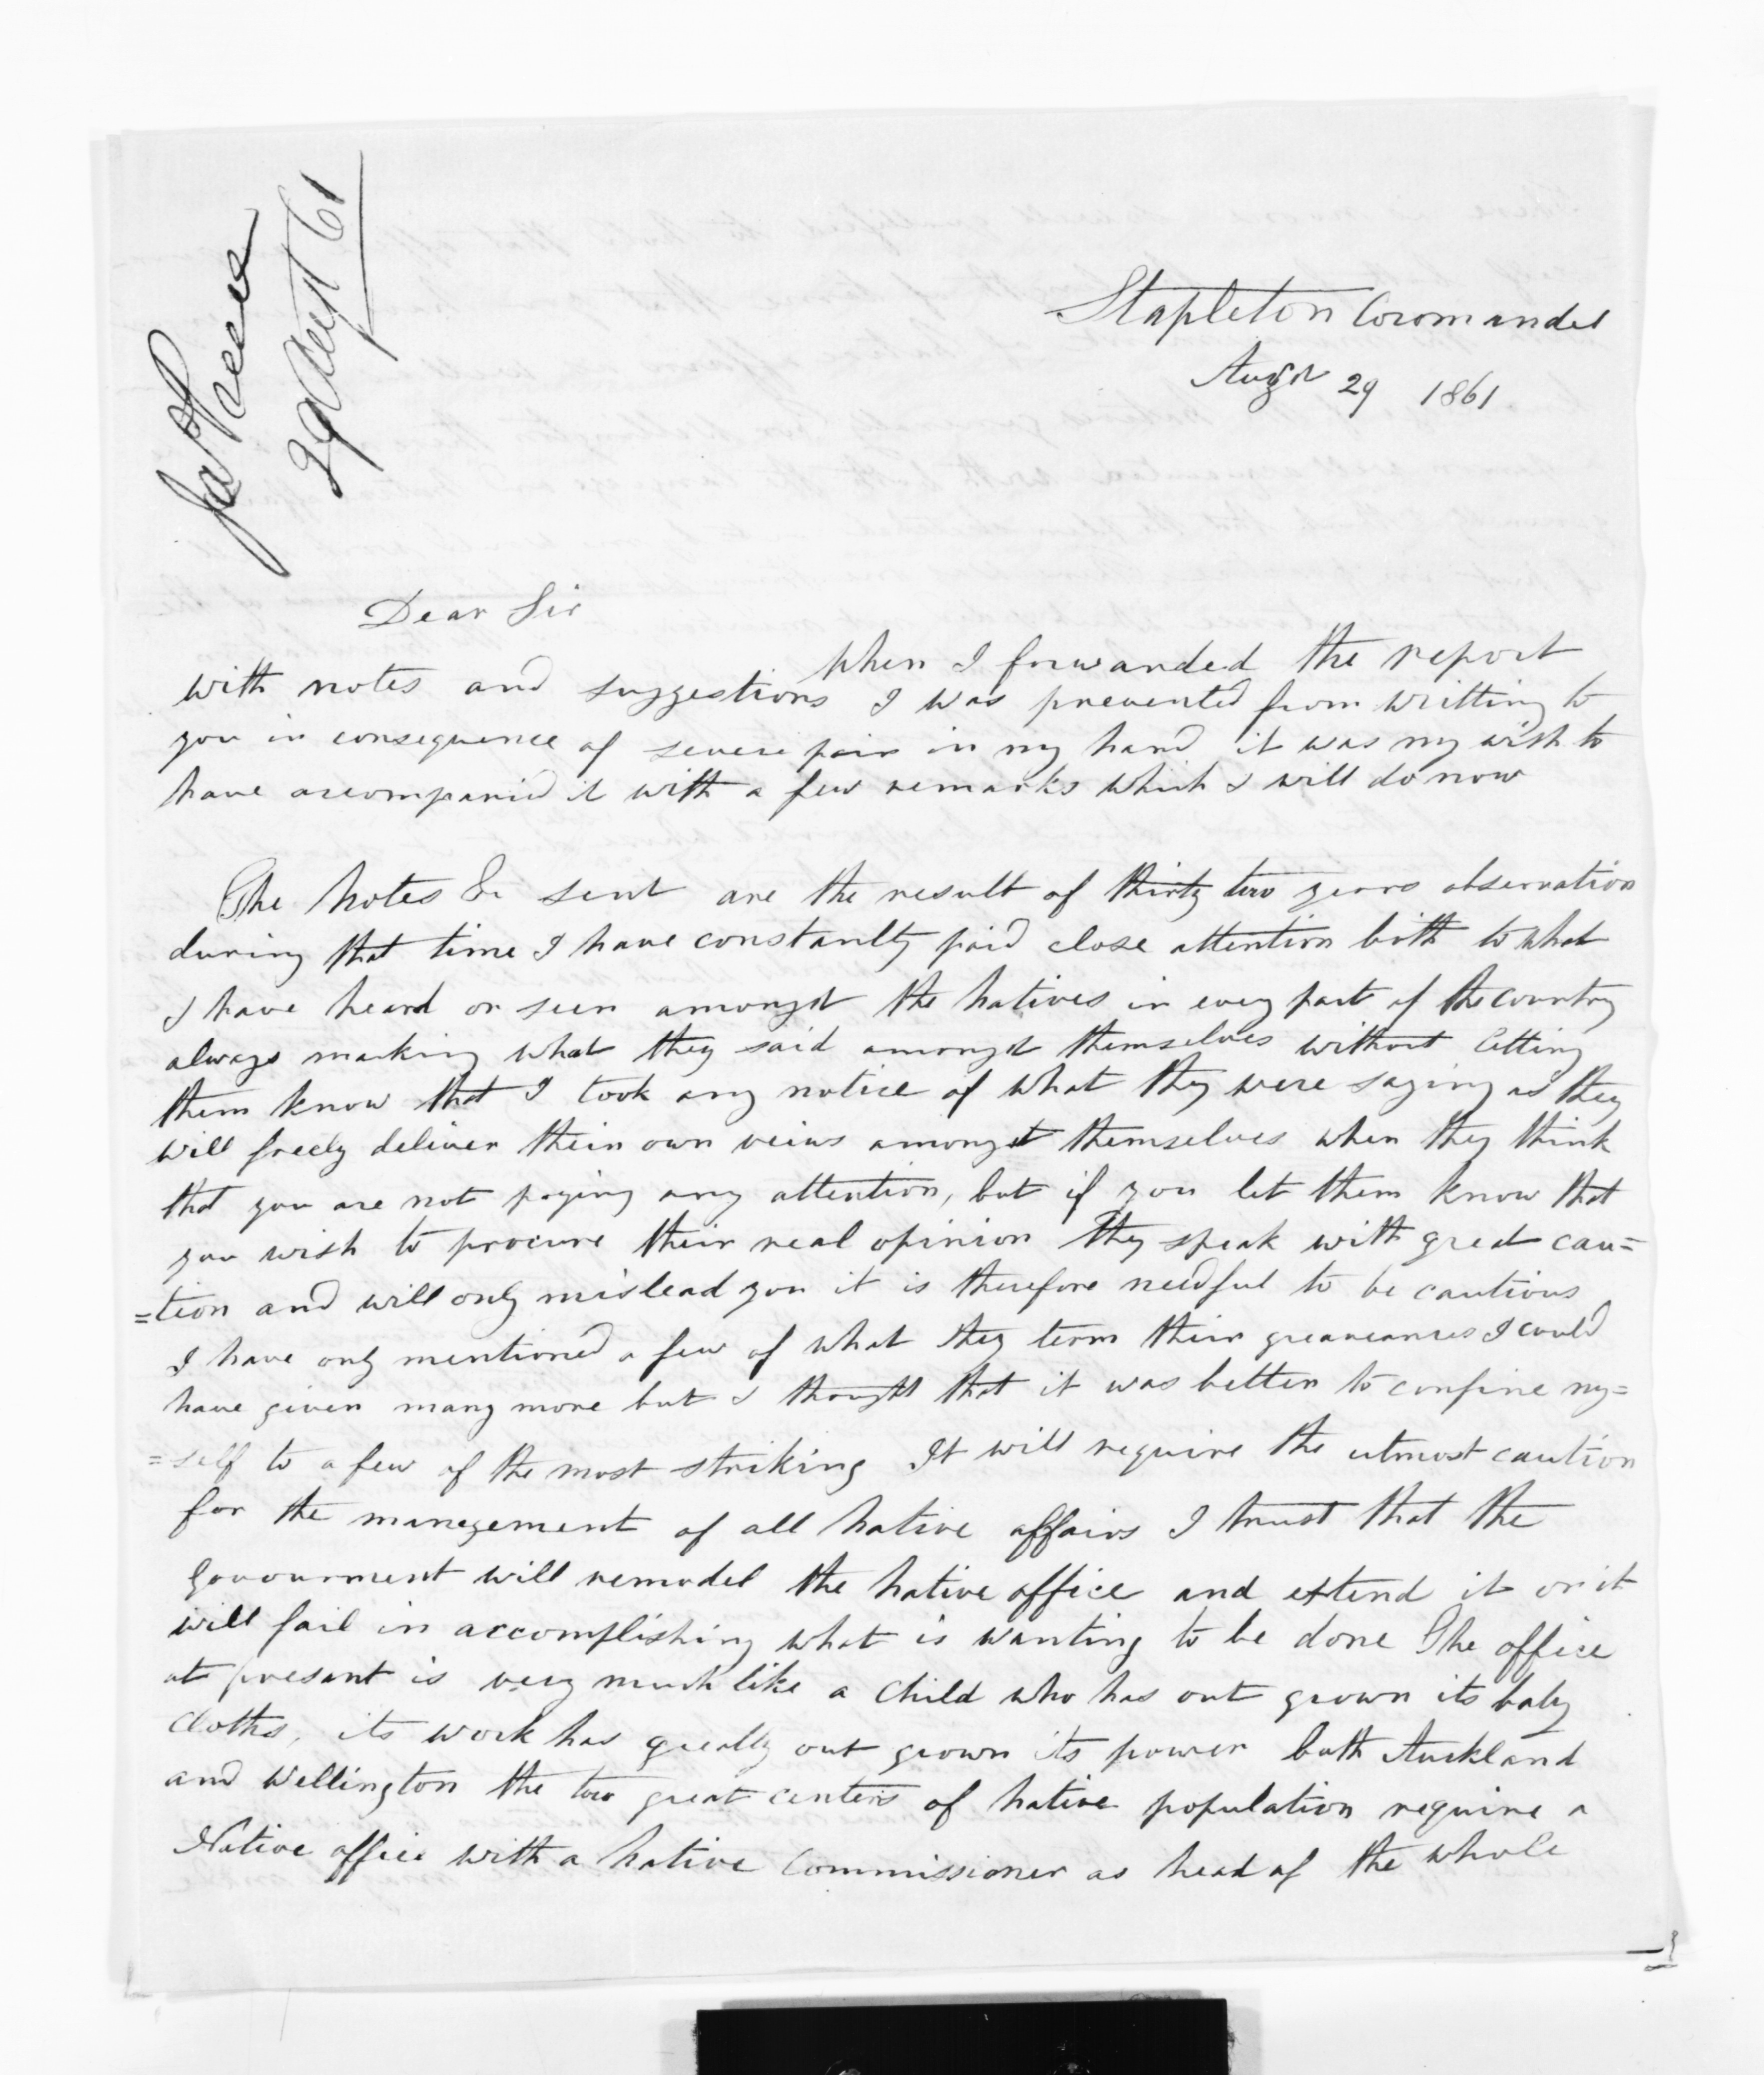 Jas Preece
29 Augt 61
Stapleton Coromandel
Augst 29 1861
Dear Sir
When I forwarded the report
with notes and suggestions I was prevented from writting to
you in consequence of severe pain in my hand it was my wish to
have accompanied it with a few remarks which I will do now
The Notes &c sent are the result of thirty two years observation
during that time I have constantly paid close attention both to what
I have heard or seen amongst the Natives in every part of the country
always marking what they said amongst themselves without letting
them know that I took any notice of what they were saying as they
will freely deliver their own veiws amongst themselves when they think
that you are not paying any attention, but if you let them know that
you wish to procure their real opinion they speak with great cau=
=tion and will only mislead you it is therefore needful to be cautious
I have only mentioned a few of what they term their greaveances I could
have given many more but I thought that it was better to confine my=
=self to a few of the most striking It will require the utmost caution
for the manegement of all Native affairs I trust that the
Govournment will remodel the Native office and extend it or it
will fail in accomplishing what is wanting to be done The office
at presant is very much like a child who has out grown its baby
cloths, its work has greatly out grown its power both Auckland
and Wellington the two great centers of Native population require a
Native office with a Native Commissioner as head of the whole